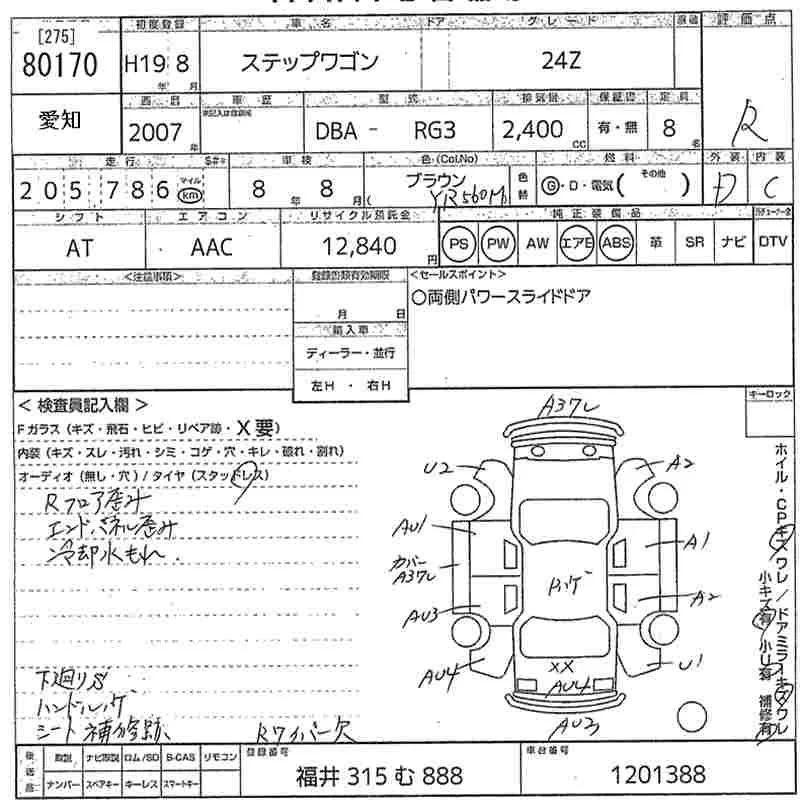 [275]
80170
初度登録 車名 ドア グレード 車歴 評価点
H19年 8月 ステップワゴン 24Z
愛知
西暦 車歴 型式 排気量 保証書 定員
2007年 DBA - RG3 2,400cc 有・無 8名 R
走行 車検 色(Col.No) 色替 燃料 外装 内装
205786 マイル km 8年 8月 ブラウン YR560M G・D・電気( その他 ) D C
シフト エアコン リサイクル預託金 純正装備品
AT AAC 12,840円 PS PW AW エアB ABS 革 SR ナビ DTV
<注意事項> 登録書類有効期限 <セールスポイント>
月 日 ○両側パワースライドドア
輸入車
ディーラー・並行
左H ・ 右H
< 検査員記入欄 > キーロック
Fガラス(キズ・飛石・ヒビ・リペア跡・X要)
内装(キズ・スレ・汚れ・シミ・コゲ・穴・キレ・破れ・割れ)
オーディオ(無し・穴)/タイヤ(スタッドレス)
Rフロア歪み
エンドパネル歪み
冷却水もれ.
A37レ
U2 A2
AU1 A1
カバー A37レ
AU3 A2
AU4 XX U1
AU4
AU3
ホイル・CPキズワレ/ドアミラーキズワレ
小キズ有 小U有 補修有
下廻りS
ハンドルハゲ
シート補修跡、 Rワイパー欠
後送品 取説 ナビ取説 ロム/SD B-CAS リモコン 登録番号 車台番号
ナンバー スペアキー キーレス スマートキー 福井 315 む 888 1201388